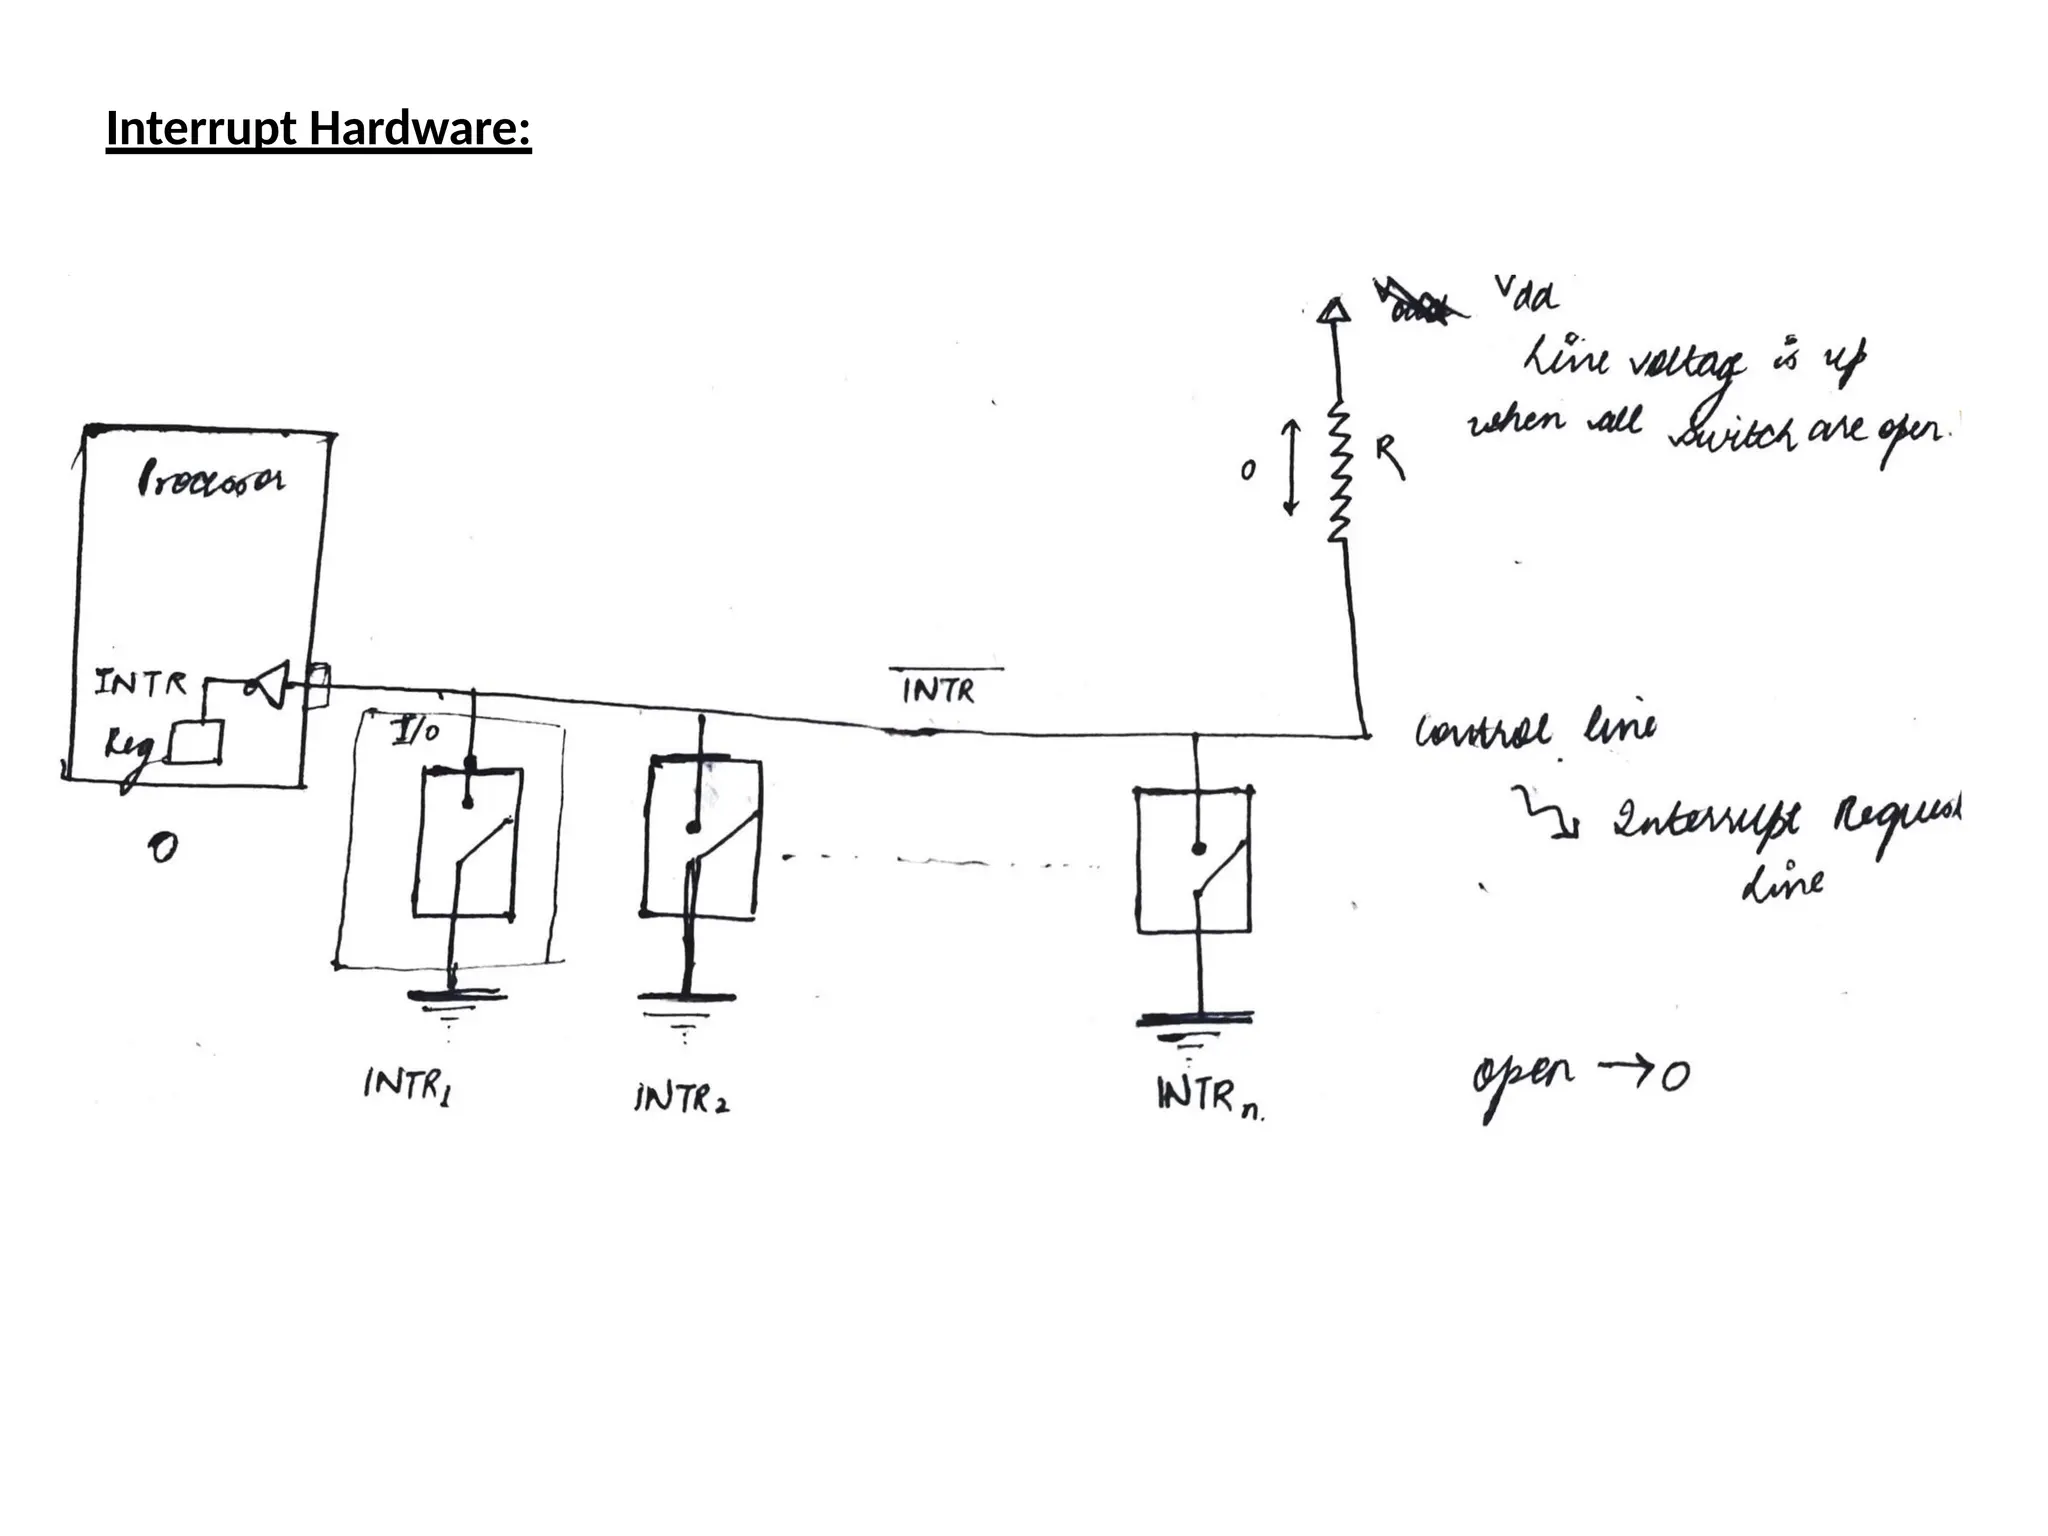 Interrupt Hardware:
Vdd
Line voltage is up
when all switch are open.
0
R
Processor
INTR
Reg
0
I/0
INTR
Control line
Interrupt Request
Line
INTR1
INTR2
INTRn.
open → 0